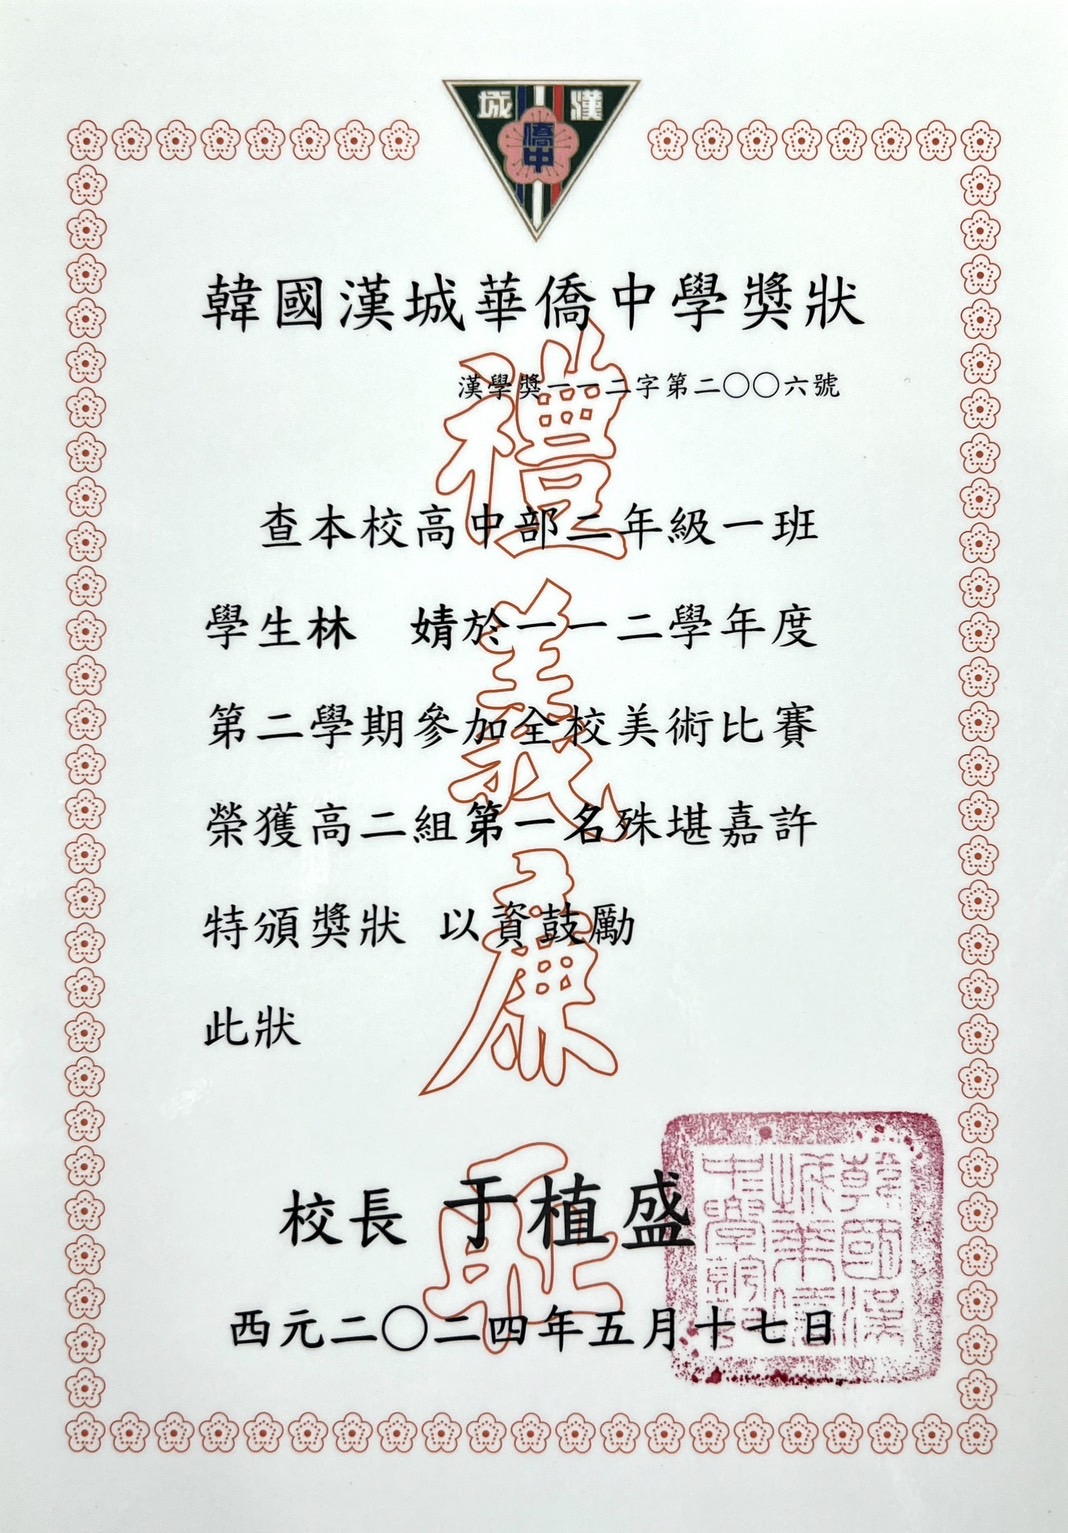 漢城
僑中
韓國漢城華僑中學獎狀
漢學獎一一二字第二〇〇六號
查本校高中部二年級一班
學生林　婧於一一二學年度
第二學期參加全校美術比賽
榮獲高二組第一名殊堪嘉許
特頒獎狀 以資鼓勵
此狀
禮義廉恥
校長 于植盛
西元二〇二四年五月十七日
韓國漢
城華僑
中學